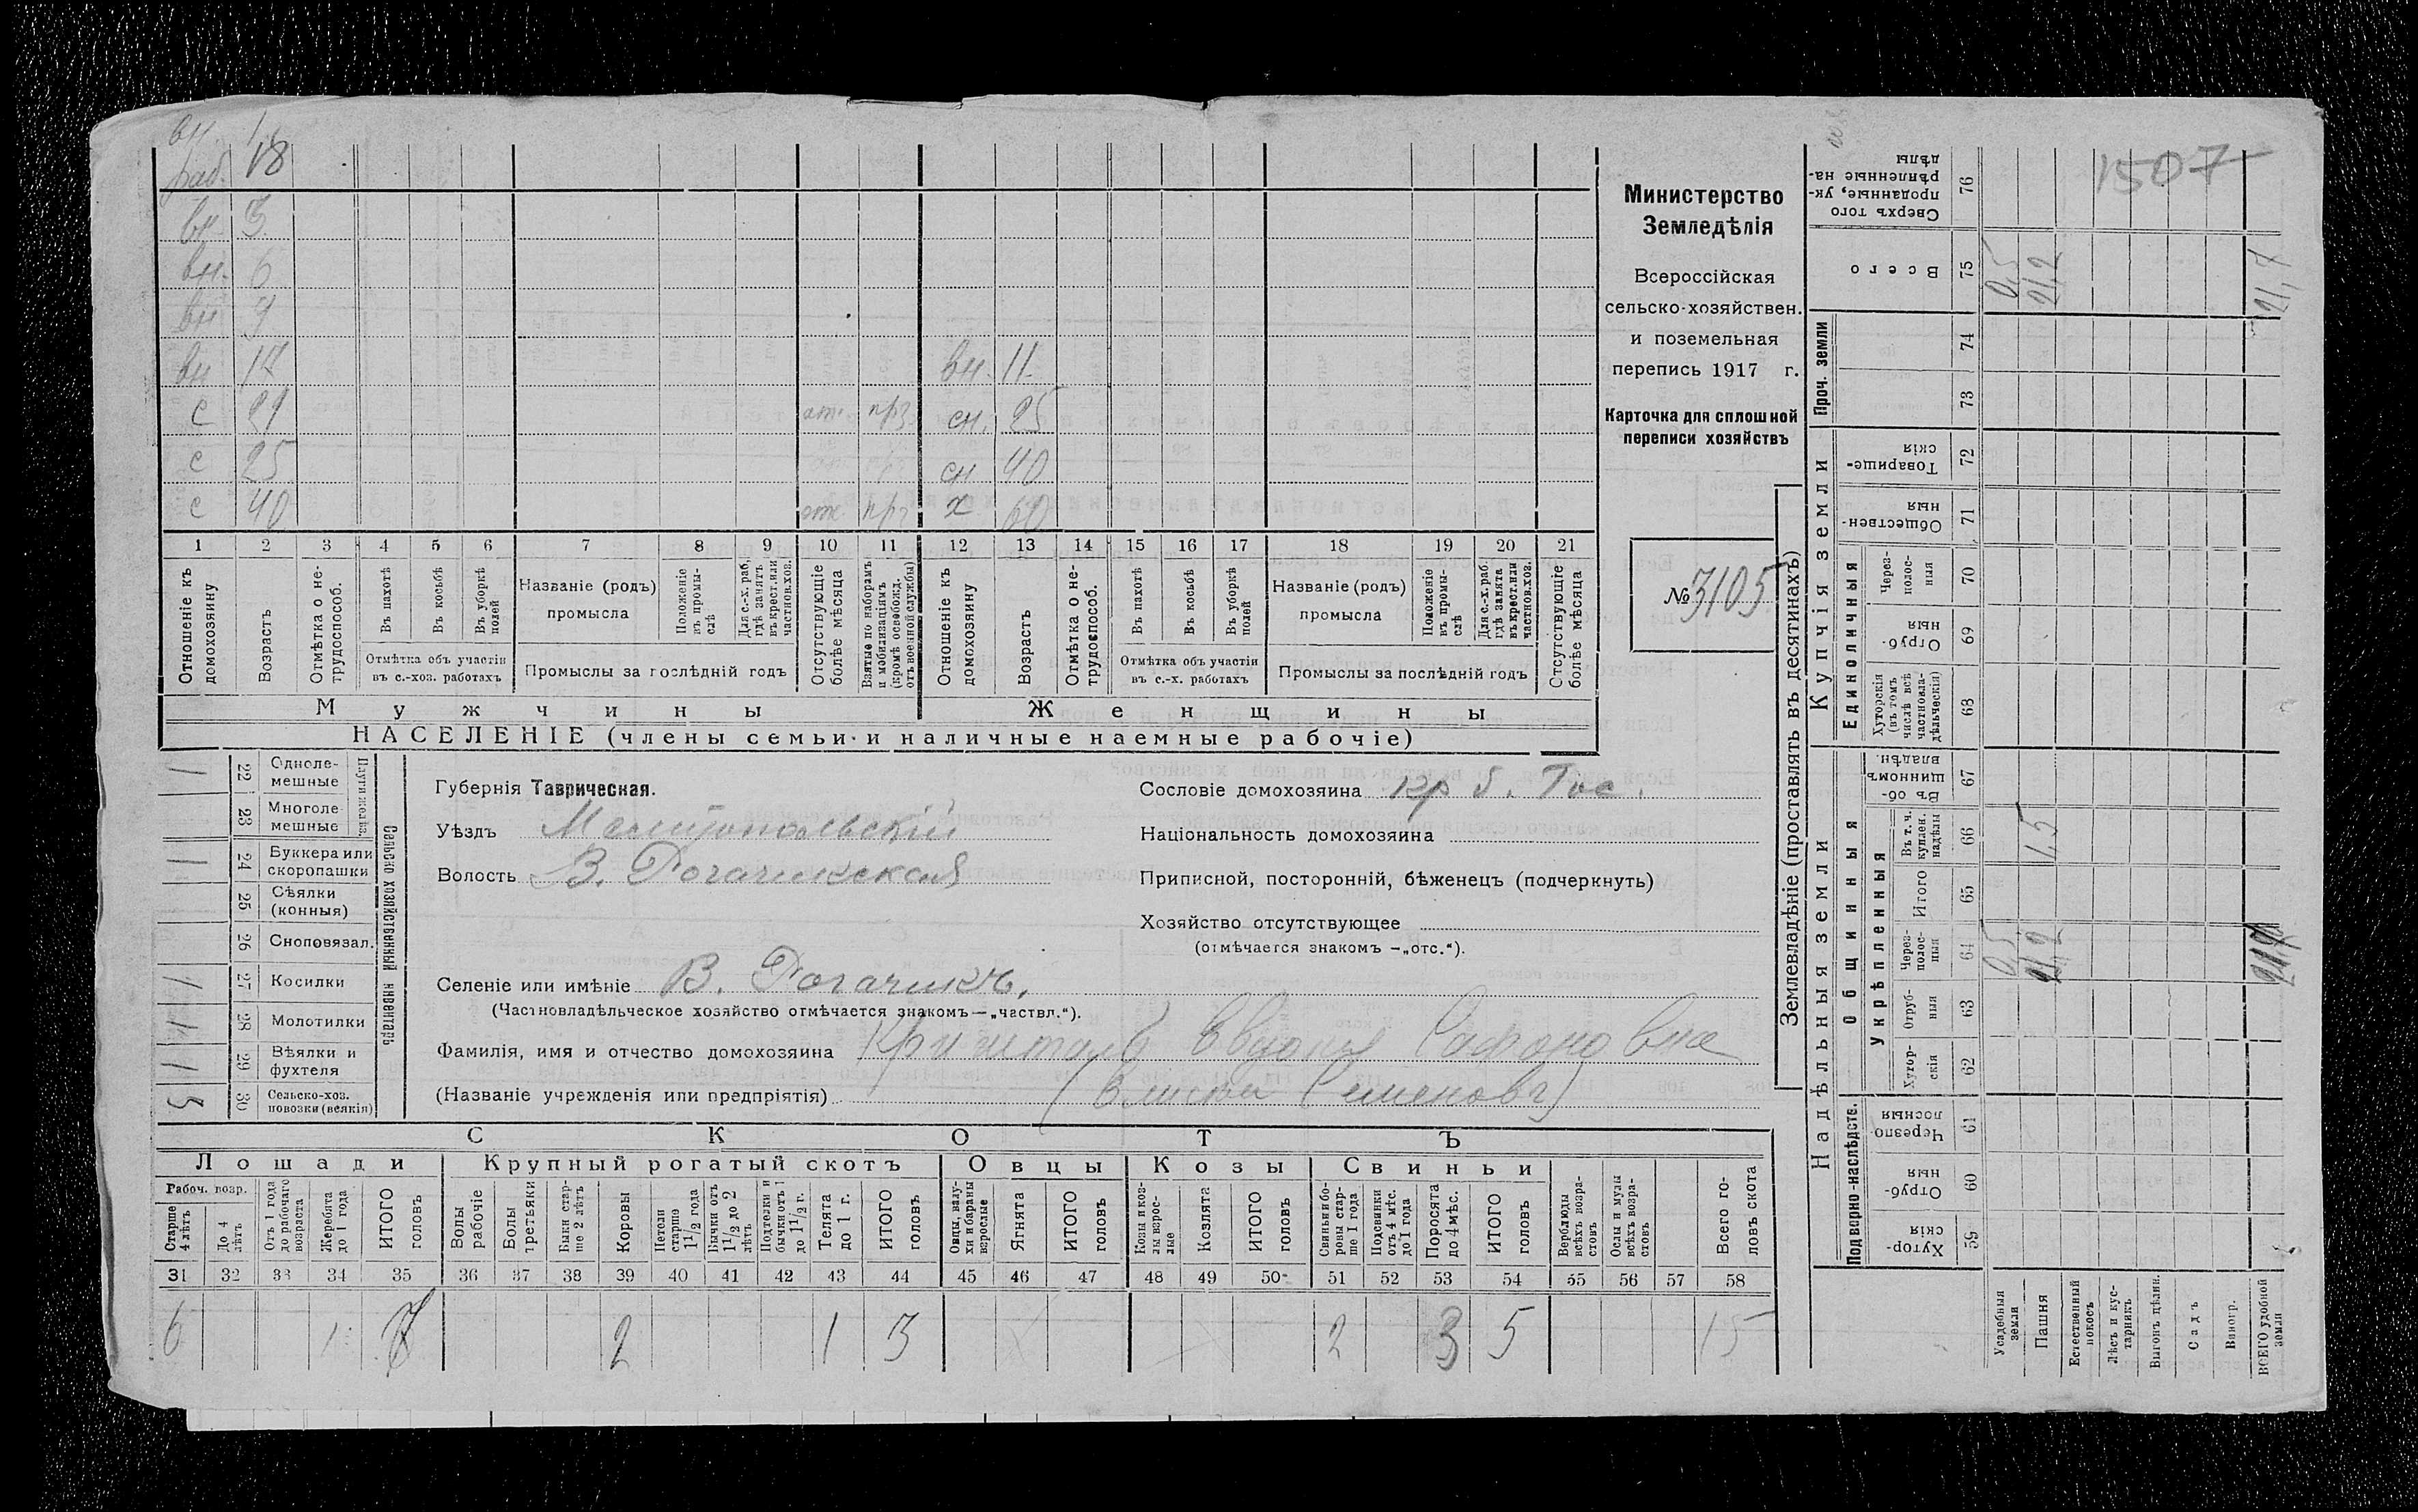 вн
раб. 18
вн 3
вн. 6
вн
вн 12 вн. 11
с отс. прз сн. 25
с 25 сн 40
с 40 отс. прз х 60
1 2 3 4 5 6 7 8 9 10 11 12 13 14 15 16 17 18 19 20 21
Отношеніе къ домохозяину
Возрастъ
Отмѣтка о не-трудоспособ.
Въ пахотѣ
Въ косьбѣ
Въ уборкѣ полей
Отмѣтка объ участіи въ с.-хоз. работахъ
Названіе (родъ) промысла
Положеніе въ промы-слѣ
Для с.-х. раб. гдѣ занятъ въ крест. или частнов.хоз.
Промыслы за послѣдній годъ
Отсутствующіе болѣе мѣсяца
Взятые по наборамъ и мобилизаціямъ (кромѣ освобожд. отъ военной службы)
Отношеніе къ домохозяину
Возрастъ
Отмѣтка о не-трудоспособ.
Въ пахотѣ
Въ косьбѣ
Въ уборкѣ полей
Отмѣтка объ участіи въ с.-х. работахъ
Названіе (родъ) промысла
Положеніе въ промы-слѣ
Для с.-х. раб. гдѣ занята въ крест. или частнов.хоз.
Промыслы за послѣдній годъ
Отсутствующіе болѣе мѣсяца
Мужчины
Женщины
НАСЕЛЕНІЕ (члены семьи и наличные наемные рабочіе)
Министерство
Земледѣлія
Всероссійская
сельско-хозяйствен.
и поземельная
перепись 1917 г.
Карточка для сплошной
переписи хозяйствъ
№ 3105
1 22 Одноле-мешные
23 Многоле-мешные
Плуги желѣз.
1 24 Буккера или скоропашки
25 Сѣялки (конныя)
26 Сноповязал.
1 27 Косилки
28 Молотилки
1 29 Вѣялки и фухтеля
3 30 Сельско-хоз. повозки (всякія)
Сельско хозяйственный инвентарь
Губернія Таврическая.
Уѣздъ Мелитопольскій
Волость В. Рогачикская
Селеніе или имѣніе В. Рогачикъ.
(Частновладѣльческое хозяйство отмѣчается знакомъ—„частвл.“).
Фамилія, имя и отчество домохозяина Евдокія Сафоновна
(Названіе учрежденія или предпріятія)
Сословіе домохозяина кр б. Гос.
Національность домохозяина
Приписной, посторонній, бѣженецъ (подчеркнуть)
Хозяйство отсутствующее
(отмѣчается знакомъ —„отс.“).
СКОТЪ
Лошади
Крупный рогатый скотъ
Овцы
Козы
Свиньи
Рабоч. возр.
Старше 4 лѣтъ
До 4 лѣтъ
Отъ 1 года до рабочаго возраста
Жеребята до 1 года
ИТОГО головъ
Волы рабочіе
Волы третьяки
Быки стар-ше 2 лѣтъ
Коровы
Нетели старше 1½ года
Бычки отъ 1½ до 2 лѣтъ
Подтелки и бычки отъ 1 до 1½ г.
Телята до 1 г.
ИТОГО головъ
Овцы, валу-хи и бараны взрослые
Ягнята
ИТОГО головъ
Козы и коз-лы взрос-лые
Козлята
ИТОГО головъ
Свиньи и бо-ровы стар-ше 1 года
Подсвинки отъ 4 мѣс. до 1 года
Поросята до 4 мѣс.
ИТОГО головъ
Верблюды всѣхъ возра-стовъ
Ослы и мулы всѣхъ возра-стовъ
Всего го-ловъ скота
31 32 33 34 35 36 37 38 39 40 41 42 43 44 45 46 47 48 49 50 51 52 53 54 55 56 57 58
6 1 7 2 1 3 2 3 5 15
Землевладѣніе (проставлять въ десятинахъ)
Купчія земли
Надѣльныя земли
Проч. земли
Единоличныя
Общинныя
Укрѣпленныя
Подворно-наслѣдств.
76 Сверхъ того проданные, ук-рѣпленные на-дѣлы
75 Всего
74
73
72 Товарище-скія
71 Обществен-ныя
70 Через-полос-ныя
69 Отруб-ныя
68 Хуторскія (въ томъ числѣ всѣ частновла-дѣльческія)
67 Въ об-щинномъ владѣн.
66 Въ т. ч. куплен. надѣлы
65 Итого
64 Через-полос-ныя
63 Отруб-ныя
62 Хутор-скія
61 Черезпо-лосныя
60 Отруб-ныя
59 Хутор-скія
1507
0,5
21,2
21,7
1,5
0,5
21,2
21,7
Усадебная земля
Пашня
Естественный покосъ
Лѣсъ и кус-тарникъ
Выгонъ дѣлин.
Садъ
Виногр.
ВСЕГО удобной земли